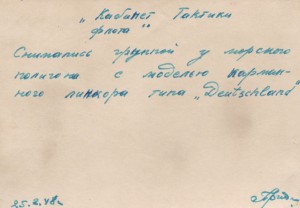 „Кабинет Тактики
флота"
Снимались группой у морского
полигона с моделью карман-
ного линкора типа „Deutschland"
25.2.48г.